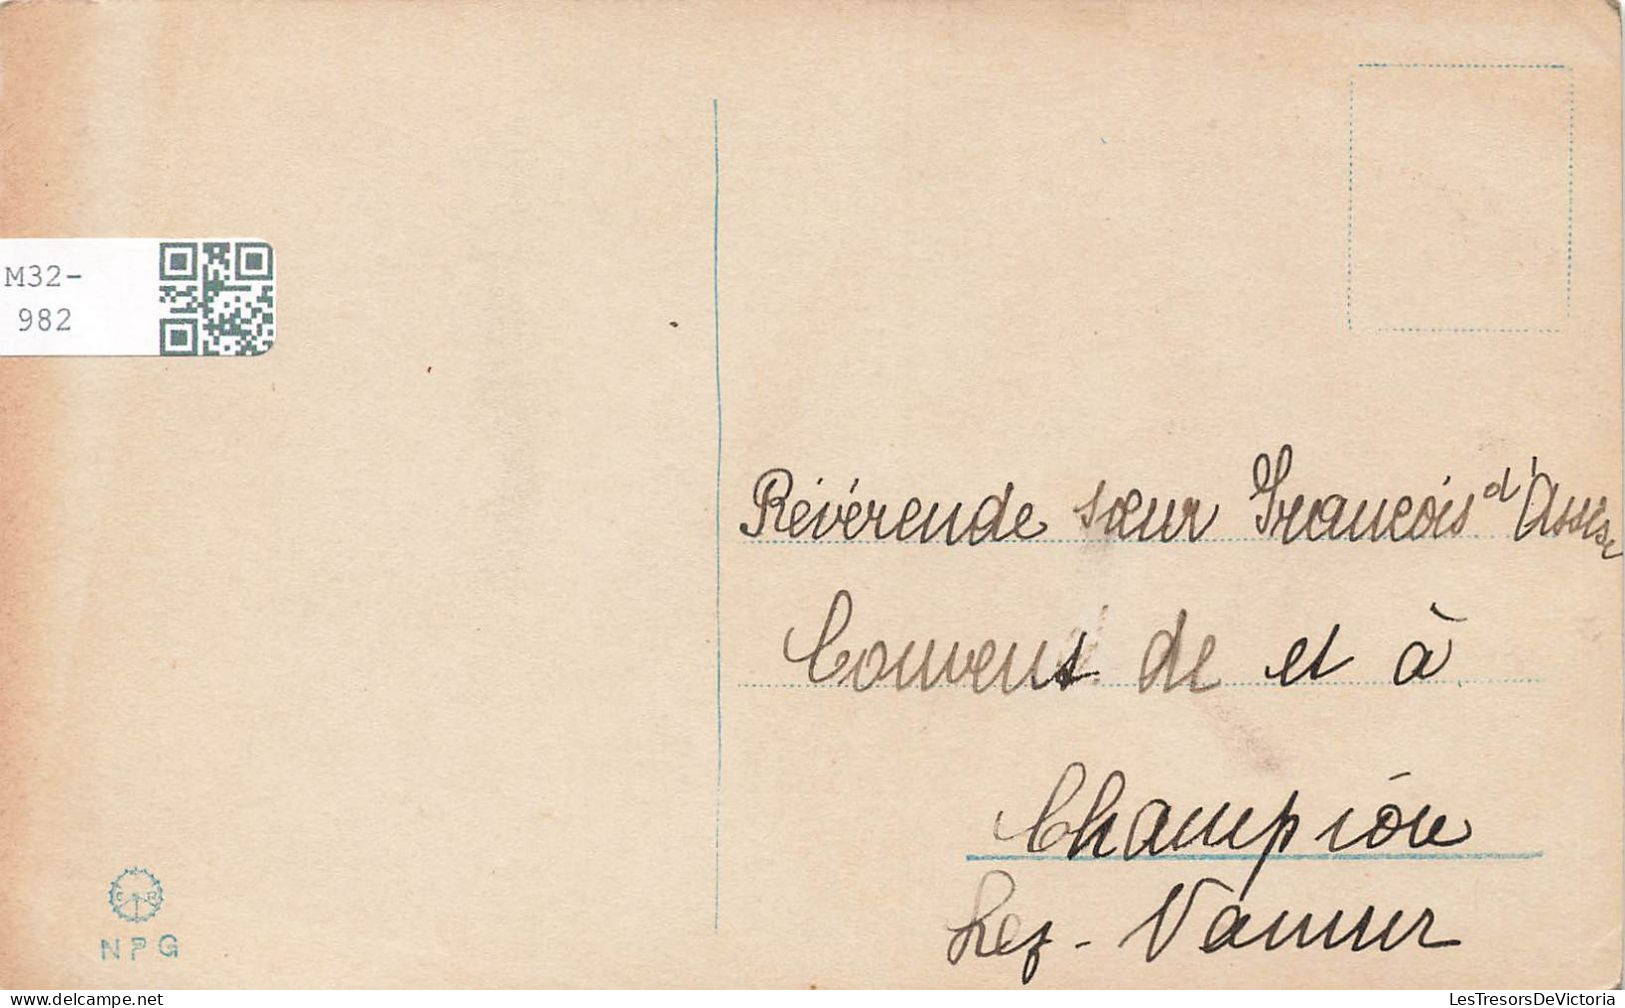 M32-
982
Révérende sœur François d'Assise
Couvent de et à
Champion
Lez-Namur
NPG
delcampe.net
LesTresorsDeVictoria